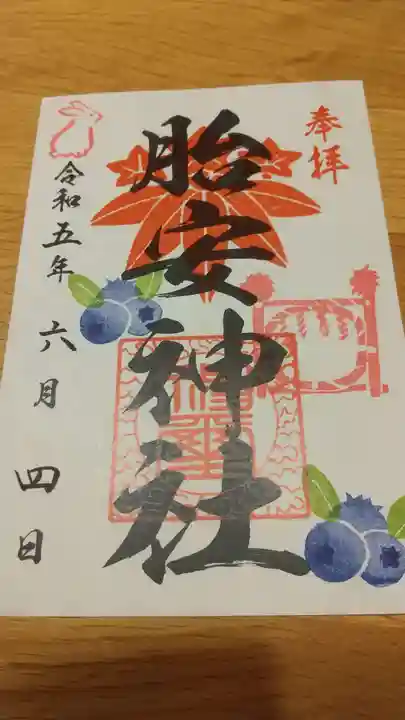 奉拝
胎安神社
令和五年 六月 四日